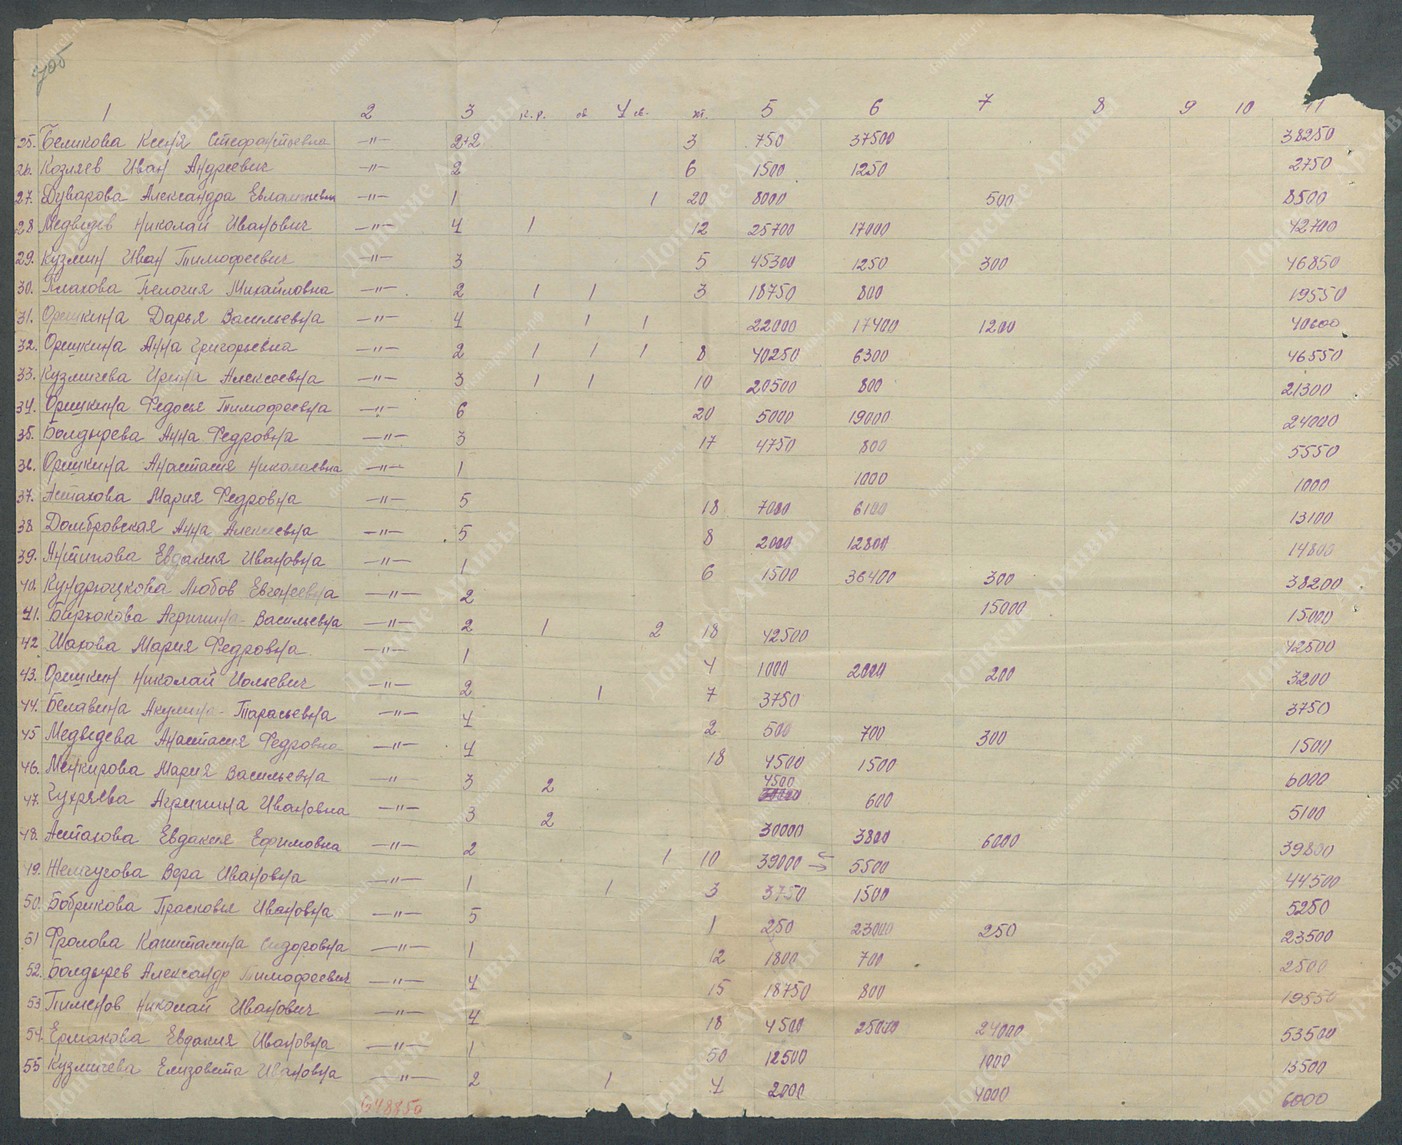 705
1 2 3 к.р. ов 4 св. пт. 5 6 7 8 9 10 11
25. Беликова Ксеня —"— 2+2 3 750 37500 38250
26. Козляев Иван Андреевич —"— 2 6 1500 1250 2750
27. Дуварова Александра —"— 1 1 20 8000 500 8500
28 Медведев Николай Иванович —"— 4 1 12 25700 17000 42700
29. Кузмин Иван Тимофеевич —"— 3 5 45300 1250 300 46850
30. Пелогия Михайловна —"— 2 1 1 3 18750 800 19550
31. Орешкина Дарья Васильевна —"— 4 1 1 22000 17400 1200 40600
32. Орешкина Анна Григорьевна —"— 2 1 1 1 8 40250 6300 46550
33. Кузмичева Ирина Алексеевна —"— 3 1 1 10 20500 800 21300
34. Орешкина Федосья Тимофеевна —"— 6 20 5000 19000 24000
35. Болдырева Анна Федровна —"— 3 17 4750 800 5550
36. Орешкина Анастасия Николаевна —"— 1 1000 1000
37. Астахова Мария Федровна —"— 5 18 7000 6100 13100
38. Домбровская Анна Алексеевна —"— 5 8 2000 12800 14800
39. Антипова Евдакия Ивановна —"— 1 6 1500 36400 300 38200
40. Кундрюцкова Любов Евгенеевна —"— 2 15000 15000
41. Бирюкова Агрипина Васильевна —"— 2 1 2 18 42500 42500
42. Шахова Мария Федровна —"— 1 4 1000 2000 200 3200
43. Орешкин Николай Ильевич —"— 2 1 7 3750 3750
44. Белавина Акулина Тарасьевна —"— 4 2 500 700 300 1500
45 Медведева Анастасия Федровна —"— 4 18 4500 1500 6000
46. Мария Васильевна —"— 3 2 4500 600 5100
47. Агрипина Ивановна —"— 3 2 30000 3800 6000 39800
48. Астахова Евдакия Ефимовна —"— 2 1 10 39000 5500 44500
49. Жемчугова Вера Ивановна —"— 1 1 3 3750 1500 5250
50. Бобрикова Прасковья Ивановна —"— 5 1 250 23000 250 23500
51 Фролова Капиталина Сидоровна —"— 1 12 1800 700 2500
52. Болдырев Александр Тимофеевич —"— 4 15 18750 800 19550
53 Пименов Николай Иванович —"— 4 18 4500 25000 24000 53500
54. Ермакова Евдакия Ивановна —"— 1 50 12500 1000 13500
55 Кузмичева Елизовета Ивановна —"— 2 1 4 2000 4000 6000